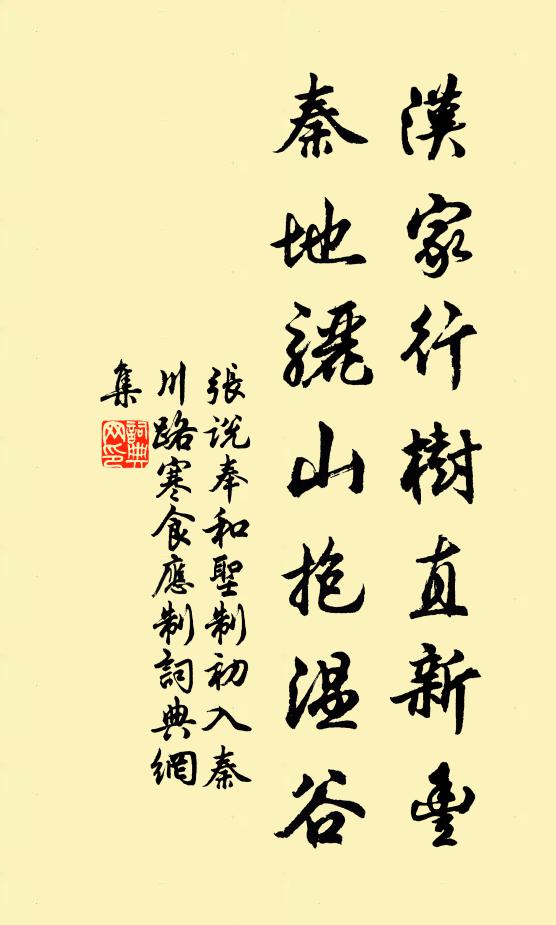 漢家行樹直新豐
秦地驪山抱温谷
張說奉和聖制初入秦
川路寒食應制詞典網
集
詞典
网印